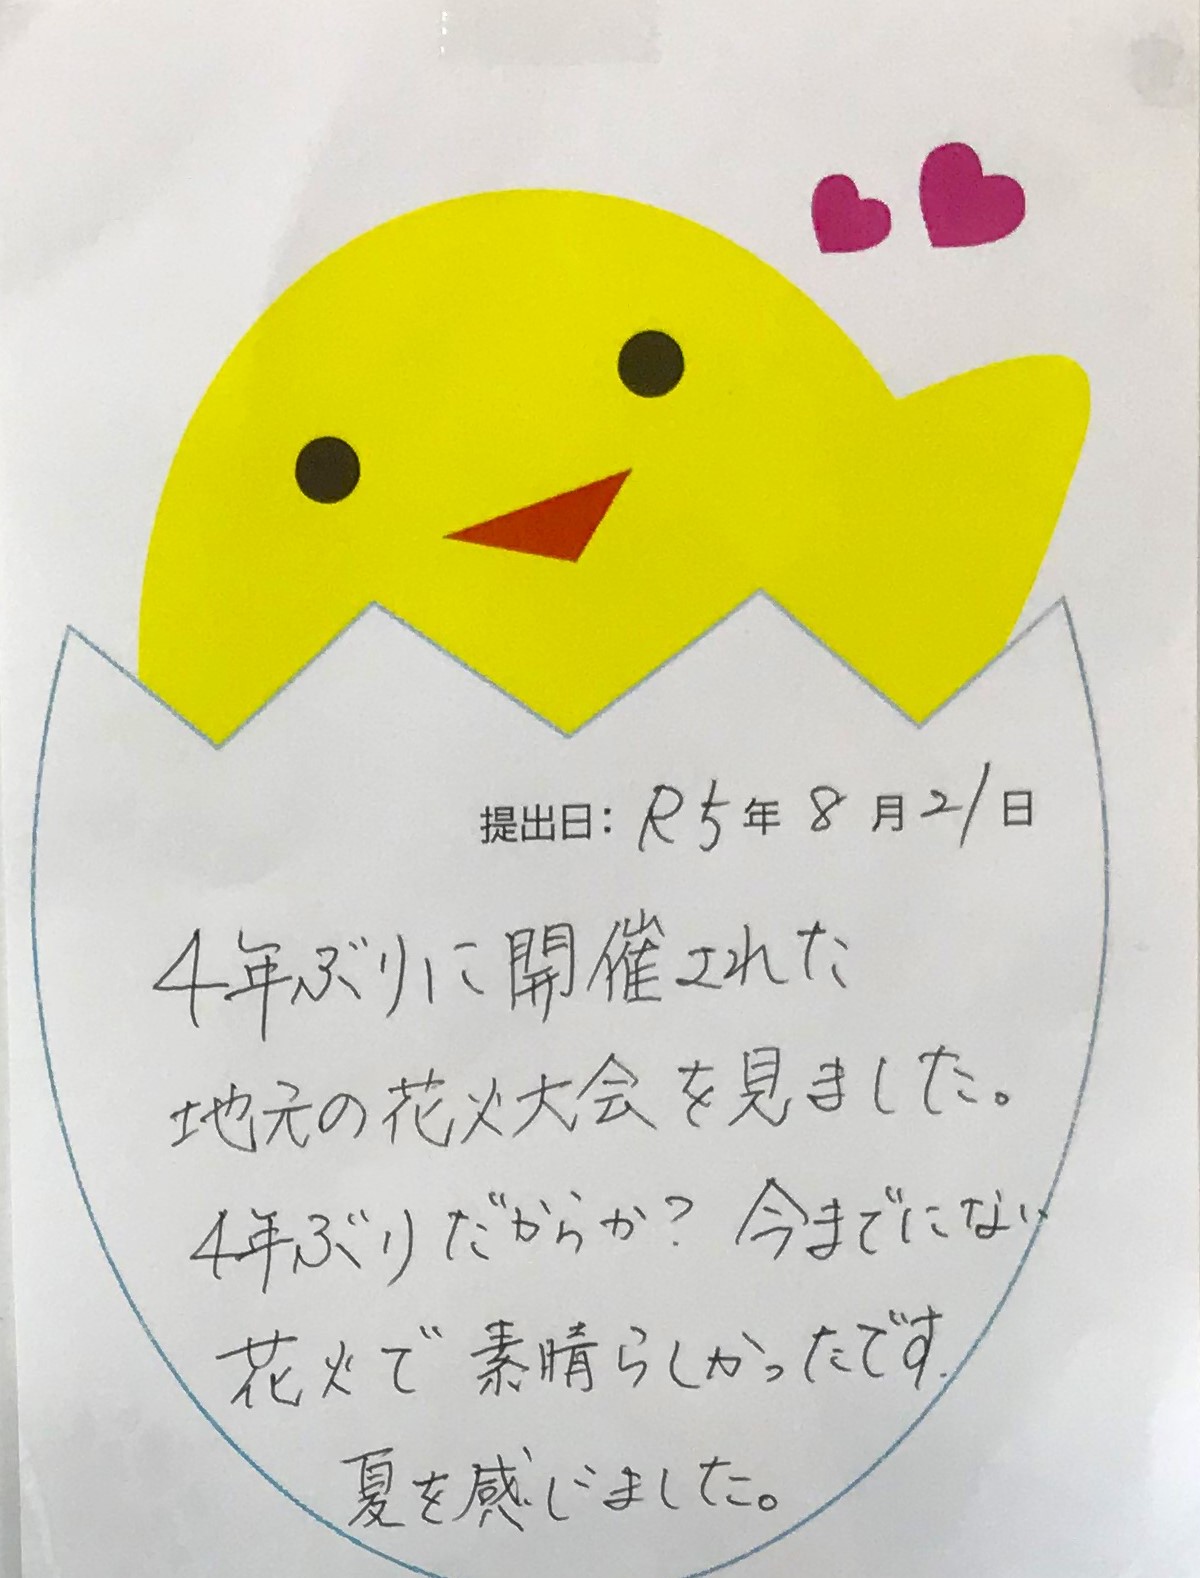 提出日: R5年8月21日
4年ぶりに開催された
地元の花火大会を見ました。
4年ぶりだからか？今までにない
花火で素晴らしかったです.
夏を感じました。